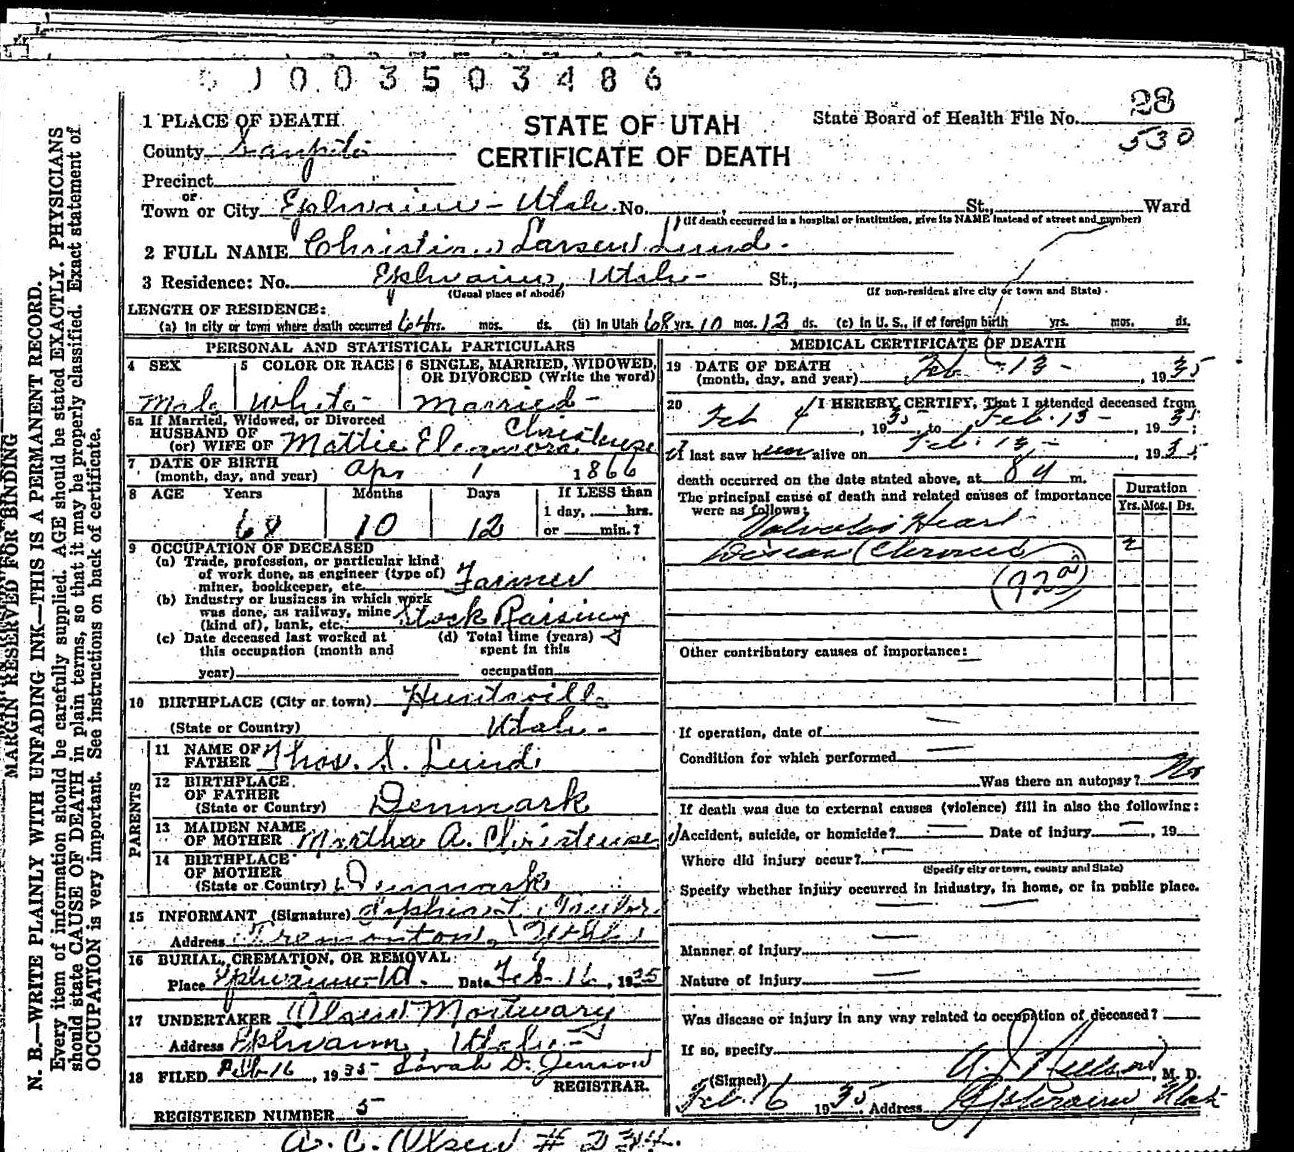 0 0 3 5 0 3 4 8 6
28
530
1 PLACE OF DEATH
STATE OF UTAH
CERTIFICATE OF DEATH
State Board of Health File No.
County Sanpete
Precinct
or
Town or City Ephraim - Utah. No. , St., Ward
(If death occurred in a hospital or institution, give its NAME instead of street and number)
2 FULL NAME Christian Larsen Lund.
3 Residence: No. Ephraim, Utah- St.,
(Usual place of abode) (If non-resident give city or town and State)
LENGTH OF RESIDENCE:
(a) In city or town where death occurred 64 yrs. mos. ds. (b) In Utah 68 yrs. 10 mos. 12 ds. (c) In U. S., if of foreign birth yrs. mos. ds.
PERSONAL AND STATISTICAL PARTICULARS
4 SEX Male
5 COLOR OR RACE White
6 SINGLE, MARRIED, WIDOWED, OR DIVORCED (Write the word) Married-
5a If Married, Widowed, or Divorced
HUSBAND OF
(or) WIFE OF Mattie Eleanora
7 DATE OF BIRTH
(month, day, and year) Apr 1 1866
8 AGE Years Months Days If LESS than
1 day, hrs.
or min.?
68 10 12
9 OCCUPATION OF DECEASED
(a) Trade, profession, or particular kind
of work done, as engineer (type of)
miner, bookkeeper, etc. Farmer
(b) Industry or business in which work
was done, as railway, mine
(kind of), bank, etc. Stock Raising
(c) Date deceased last worked at
this occupation (month and
year)
(d) Total time (years)
spent in this
occupation
10 BIRTHPLACE (City or town) Huntsville
(State or Country) Utah-
PARENTS
11 NAME OF
FATHER Thos. S. Lund
12 BIRTHPLACE
OF FATHER
(State or Country) Denmark
13 MAIDEN NAME
OF MOTHER Martha A.
14 BIRTHPLACE
OF MOTHER
(State or Country) Denmark
15 INFORMANT (Signature)
Address Tremonton, Utah
16 BURIAL, CREMATION, OR REMOVAL
Place Ephraim Ut. Date Feb- 16, 1935
17 UNDERTAKER Olsen Mortuary
Address Ephraim, Utah-
18 FILED Feb 16, 1935 Sarah D. Jenson
REGISTRAR.
REGISTERED NUMBER 5
A. C. Olsen # 234.
MEDICAL CERTIFICATE OF DEATH
19 DATE OF DEATH
(month, day, and year) Feb - 13 - , 1935
20 I HEREBY CERTIFY, That I attended deceased from
Feb 4, 1935 to Feb. 13 - , 1935;
I last saw him alive on Feb. 13 - , 1935
death occurred on the date stated above, at 8 m.
The principal cause of death and related causes of importance
were as follows:
Duration
Yrs. Mos. Ds.
Valvular Heart
Disease (Chronic) 2
(92a)
Other contributory causes of importance:
If operation, date of
Condition for which performed
Was there an autopsy? No
If death was due to external causes (violence) fill in also the following:
Accident, suicide, or homicide? Date of injury , 19
Where did injury occur?
(Specify city or town, county and State)
Specify whether injury occurred in industry, in home, or in public place.
Manner of Injury
Nature of Injury
Was disease or injury in any way related to occupation of deceased?
If so, specify
(Signed) , M. D.
Feb. 16 1935 Address Ephraim Utah
MARGIN RESERVED FOR BINDING
N. B.—WRITE PLAINLY WITH UNFADING INK—THIS IS A PERMANENT RECORD.
Every item of information should be carefully supplied. AGE should be stated EXACTLY. PHYSICIANS
should state CAUSE OF DEATH in plain terms, so that it may be properly classified. Exact statement of
OCCUPATION is very important. See instructions on back of certificate.